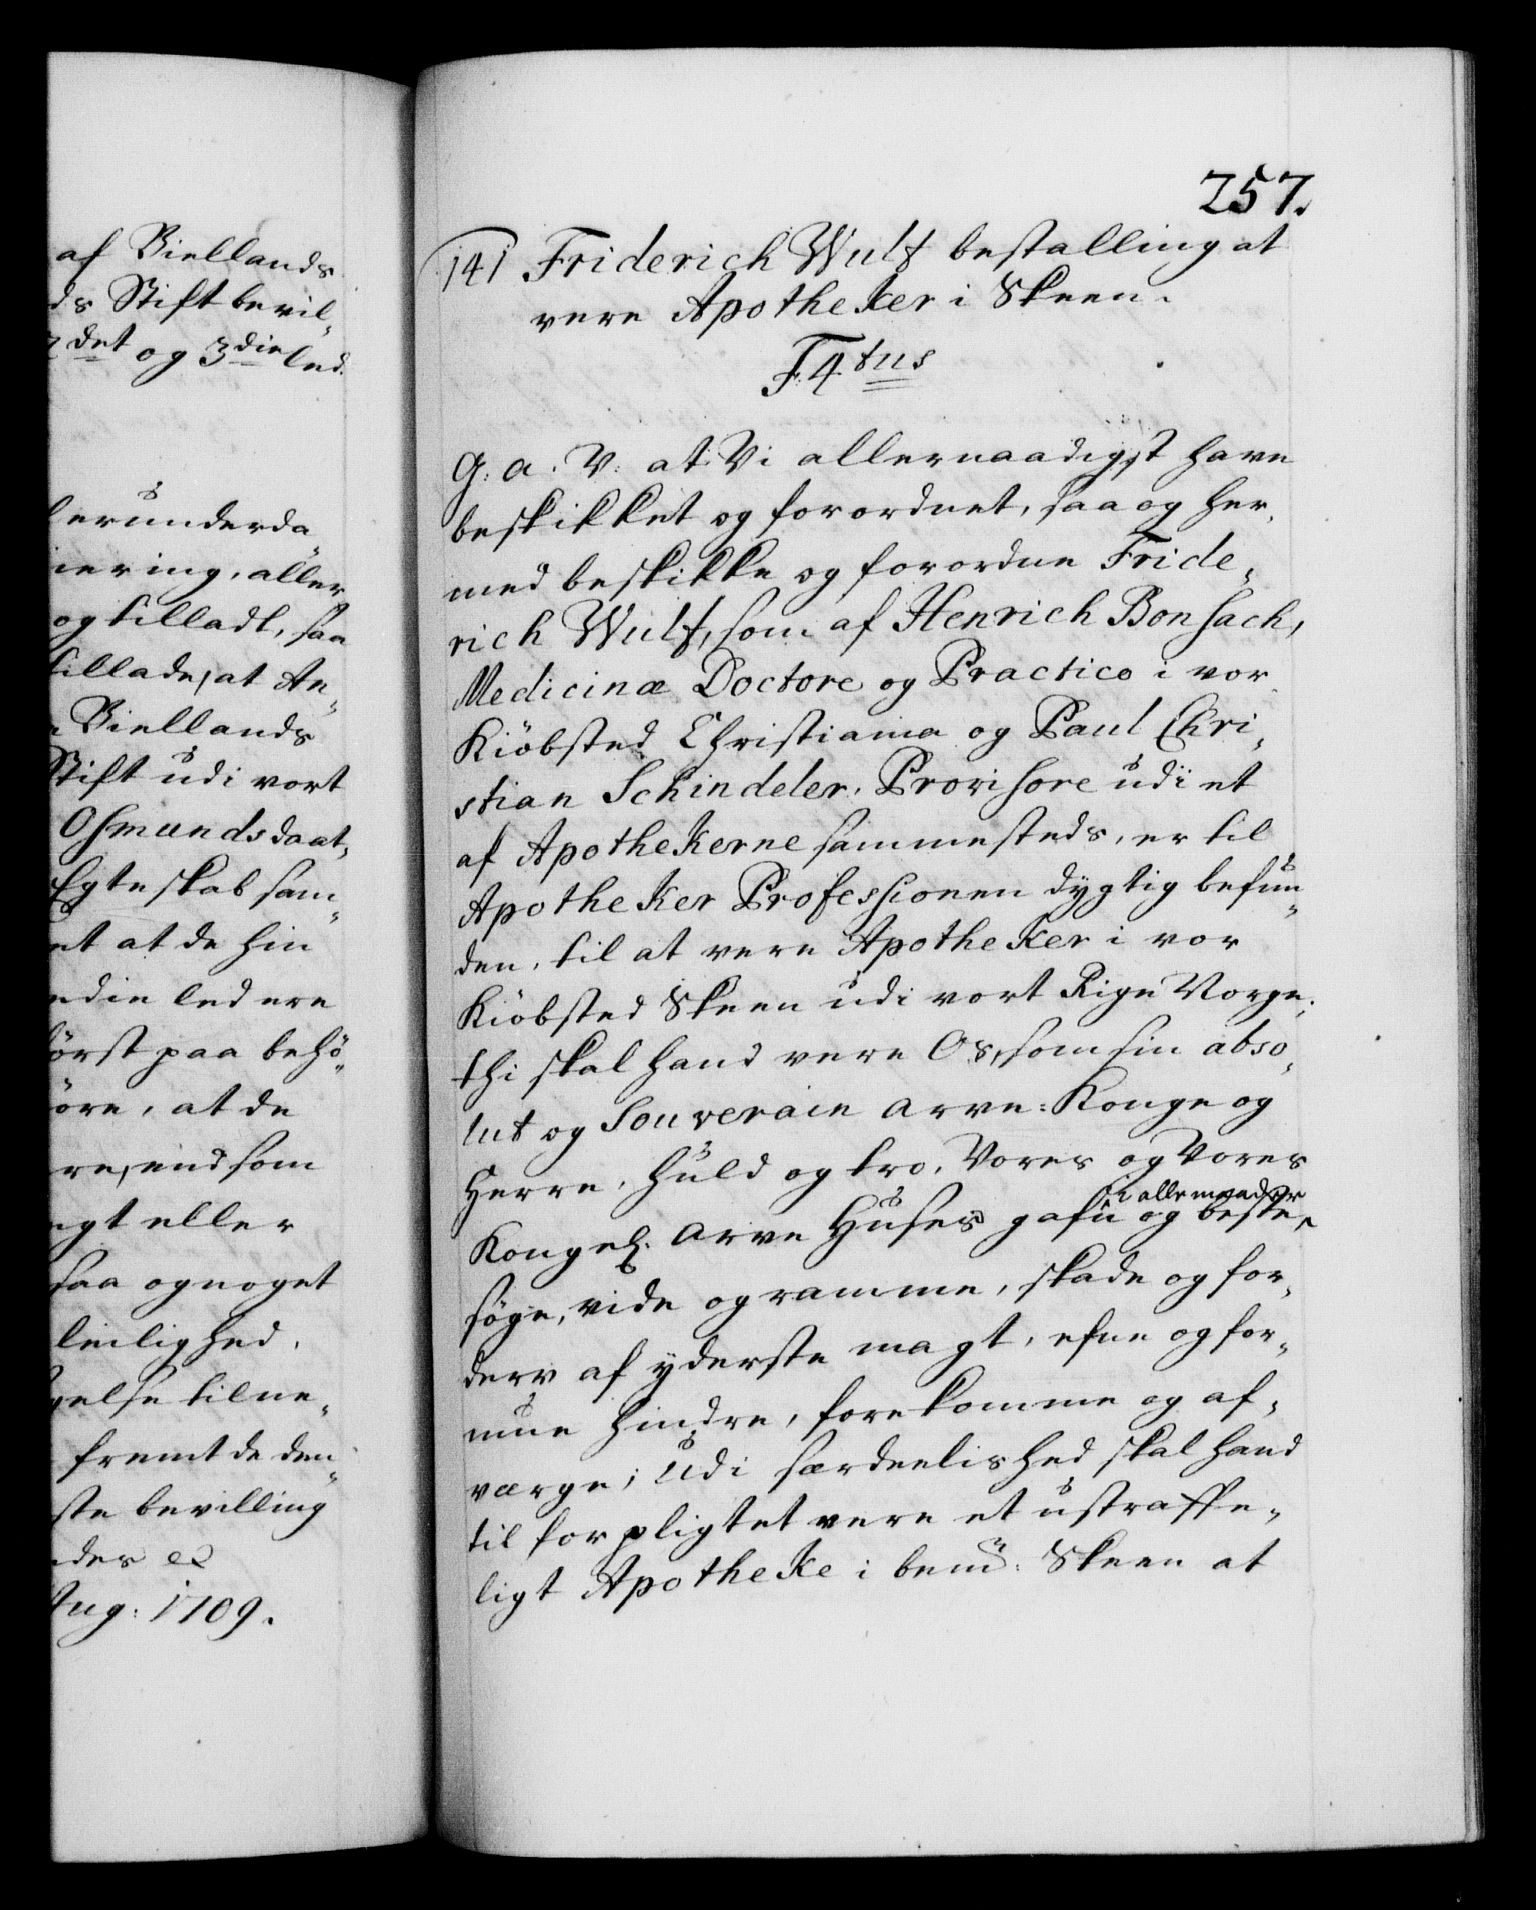 af Biellands
ds Stift bevil„
2det og 3die led.
lerunderda„
iering, aller
og tilladt, saa
tillade, at An„
Biellands
Stift udi vort
Osmundsdaat„
Egteskab sam„
et at de hin
edie led ere
först paa behö„
öre, at de
re, end som
egt eller
saa og noget
leilighed.
gelse tilne„
fremt de den„
ste bevilling
des &
Aug: 1709.
257.
141 Friderich Wulf bestalling at
vere Apotheker i Skeen.
F4tus
G. a. V: at Vi allernaadigst have
beskikket og forordnet, saa og her„
med beskikke og forordne Fride„
rich Wulf, som af Henrich Bonsach,
Medicinæ Doctore og Practico i vor
Kiöbsted Christiania og Paul Chri„
stian Schindeler, Provisore udi et
af Apothekerne sammesteds, er til
Apotheker Professionen dygtig befun„
den, til at vere Apotheker i vor
Kiöbsted Skeen udi vort Rige Norge;
thi skal hand vere Os, som sin abso„
lut og Souverain Arve-Konge og
Herre, huld og tro, Vores og Vores
i alle maader
Kongel. Arve Huses gafn og beste,
söge, vide og ramme, skade og for„
derv af yderste magt, efne og for„
mue hindre, forekomme og af„
værge; Udi særdeelished skal hand
tilforpligtet vere et ustraffe„
ligt Apotheke i bemte: Skeen at